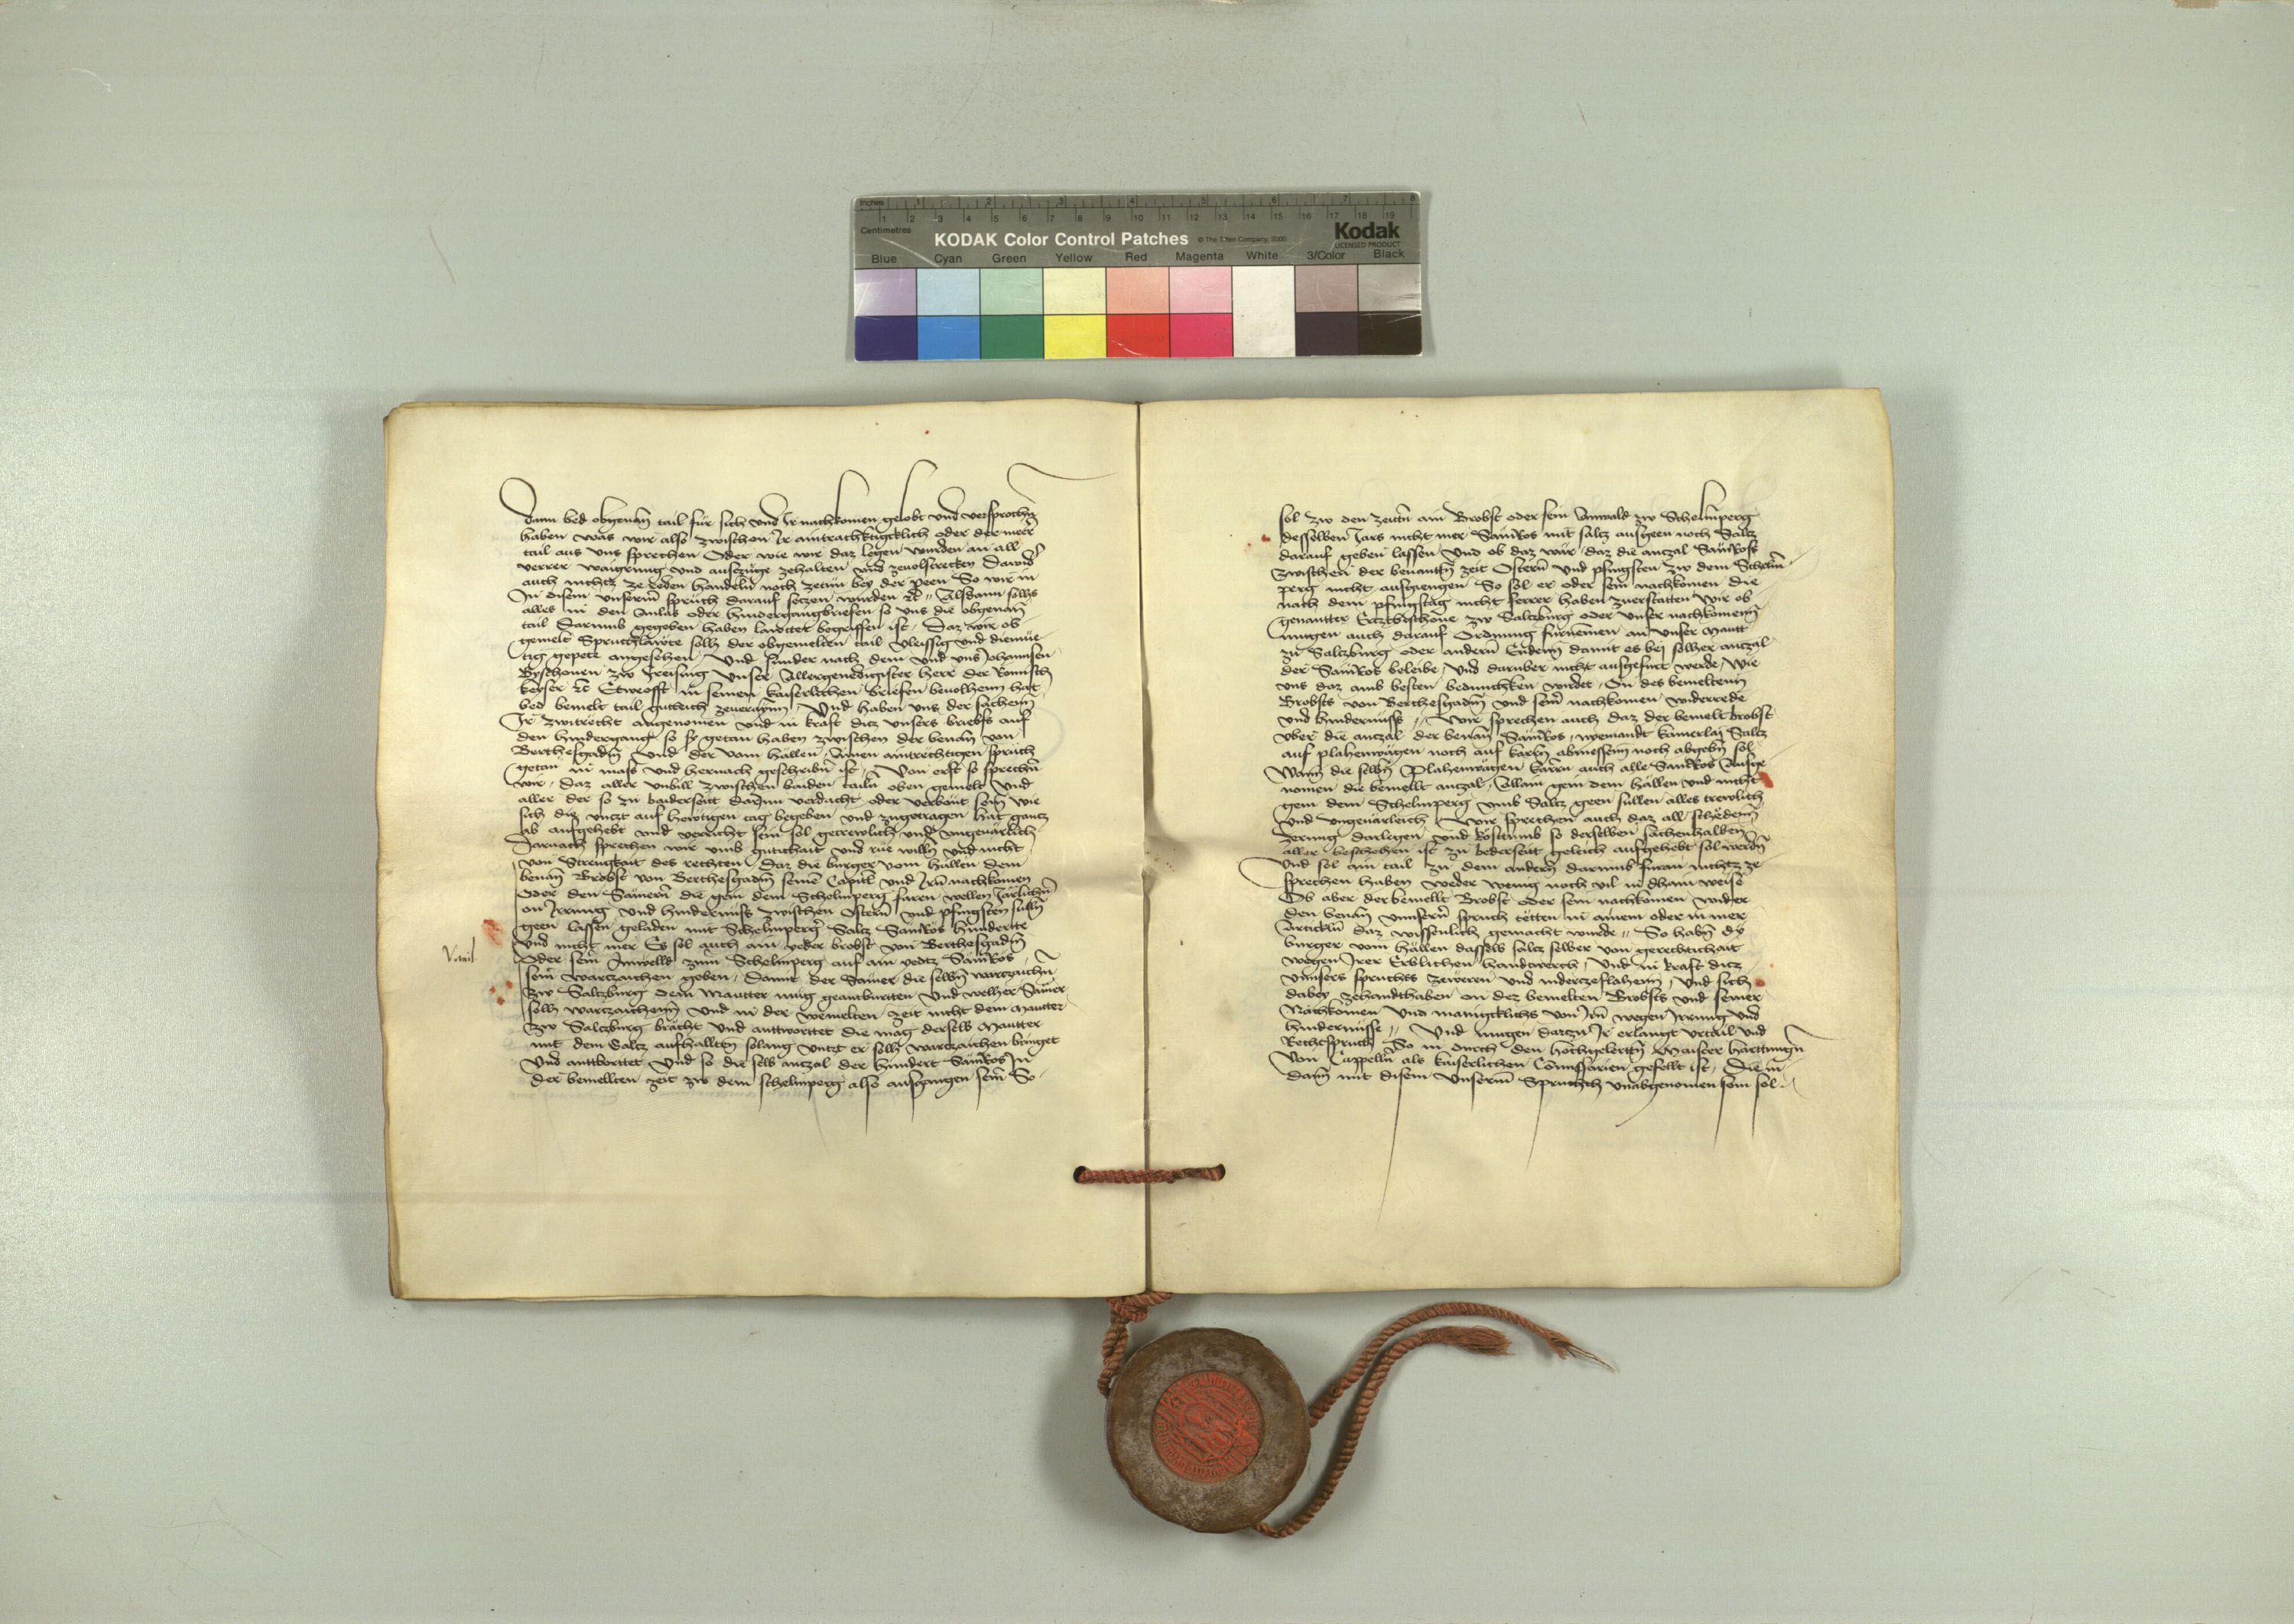 Inches 1 2 3 4 5 6 7 8
1 2 3 4 5 6 7 8 9 10 11 12 13 14 15 16 17 18 19
Centimetres
KODAK Color Control Patches © The Tiffen Company, 2000 Kodak
LICENSED PRODUCT
Blue Cyan Green Yellow Red Magenta White 3/Color Black
dann bed obgenañ tail für sich und Ir nachkomen gelobt und versprochñ
haben was wir also zwischen Ir aintrachktigcklich oder der meer
tail aus uns sprechen Oder wie wir daz legen wurden an all
verrer waigrung und auszüge zehalten und zeuolstrecken Dawid
auch nichtz ze reden handeln noch zetün bey der peen So wir in
In disem unserm spruch darauf setzen wurden ꝛc Alsdann solhs
alles in den Anlas oder hindergangbriefen so uns die obgenañ
tail darumb gegeben haben lawtter begriffen ist Daz wir ob
gemelt Spruchlawte solh der obgemelten tail vleissig und diemüe
tig gepete angesehen Und sunder nach dem und uns Johannsen
Byschouen zw Freising unser Allergenedigister herr der Romisch
keyser ꝛc Etweofft in seinen kaiserlichen briefen beuolhenn hat
bed bemelt tail gutlich zeuerainn Und haben uns der sachenn
Ir zwitrecht angenomen und in kraft ditz unsers briefs auf
den hindergang so sy getan haben zwischen der benañ von
Berthesgadñ und der vom hällen Ainen aintrechtigen spruch
getan in mass und hernach geschribñ ist Von erst so sprechñ
wir daz aller unbill zwischen baiden tailn oben gemelt und
aller der so zu baiderseitt darInn verdacht oder verbont sein wie
sich die untzt auf hewtigen tag begeben und zugetragen hat gantz
ab aufgehebt und verricht sein sol getrewlich und ungeuärlich
Darnach sprechen wir umb gutichait und rüe willñ und nicht
von Strengkait des rechten daz die burger vom hällen dem
benañ Brobst von Berthesgadñ seinem Capitl und Irñ nachkomen
Oder den Sämern die gein dem Schelmperg faren wellen Järlichñ
on Irrung und hindernüss zwischen Ostern und pfingsten sullñ
geen lassen geladen mit Schelmperger Saltz Samros hunderte
und nicht mer Es sol auch ain yeder brobst von Berthesgadñ
Oder sein Annwelld zum Schelmperg auf ain yedtz Samros
sein wartzaichen geben Damit der Sämer die selbñ wartzaichñ
zw Saltzburg dem Mautter müg geantburtten Und welher Sämer
solh wartzaichenn und in der bemelten zeit nicht dem Mautter
zw Saltzburg brächt und anttworttet die mag derselb Mautter
mit dem Saltz aufhallten solang untzt er solh wartzaichen bringet
Und anttbortet Und so die selb antzal der hundert SämRos In
der bemellten zeit zw dem schelmperg also ausgangen sein So
sol zw den zeitñ ain Brobst oder sein Anwald zw Schelmperg
desselben Jars nicht mer SämRos mit saltz ausgeen noch Saltz
darauf geben lassen Und ob daz wär daz die antzal SämRoss
zwischen der benanttñ zeit Ostern und pfingsten zw dem Schelm
perg nicht ausgiengen So sol er oder sein nachkomen die
nach dem pfingstag nicht ferrer haben zuerstatten Wir ob
genantter Ertzbischoue zw Saltzburg oder unser nachkomenn
mugen auch darauf Ordnung fürnemen an unser Mautt
zu Saltzburg oder andern Enndenn damit es bej solher antzal
der SämRos beleibe Und darüber nicht ausgefurt werde Wie
uns daz amb besten bedunncken wirdet On des bemeltenn
Brobsts von Berthesgadñ und sein nachkomen widerrede
und hindernüss Wir sprechen auch daz der bemelt Brobst
über die antzal der benañ SämRos nyemandt kainerlaj Saltz
auf plahenwägen noch auf karñ abmessenn noch abgebñ sol
Wann die selbñ Plahenwägen karrn auch alle SämRos Ausge
nomen die bemellt antzal Allain gein dem hällen und nicht
gein dem Schelmperg umb Saltz geen sullen alles trewlich
Und ungeuärleich Wir sprechen auch daz all schedenn
Zerung darlegen und kosttumb so derselben sachenhalben
aller beschehen ist zu bederseitt geleich aufgehebt sol werdñ
Und sol ain tail zu dem andern darumb furan nichtz ze
sprechen haben weder wenig noch vil in dhain weise
Ob aber der bemellt Brobst oder sein nachkomen wider
den benañ unnsern spruch tetten in ainem oder in mer
Artickln daz wissenlich gemacht wurde So habñ dy
burger vom hällen dasselb saltz selber von gerechtichait
wegen Irer Erblichen handtwerch Und in kraft ditz
unnsers spruchs zeweren und niderzeslahenn Und sich
dabey zehandthaben on des bemelten Brobsts und seiner
Nachkomen und manigcklichs von Irñ wegen Irrung und
hindernüsse Und mugen dartzu Ir erlangt urtail und
Rechtspruch So in durch den hochgelertñ Maister harttungñ
von Cappelln als kaiserlichen Comissarien gesellt ist Die in
dann mit disem unserm Spruchch unabgenomen sein sol